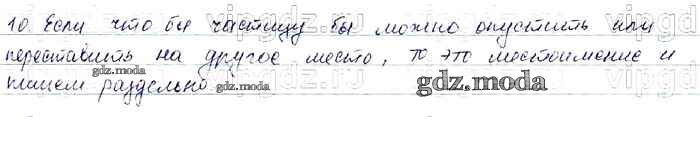 10. Если что бы частицу бы можно опустить или
переставить на другое место, то это местоимение и
пишем раздельно
gdz.moda
gdz.moda
gdz.moda
vipgdz